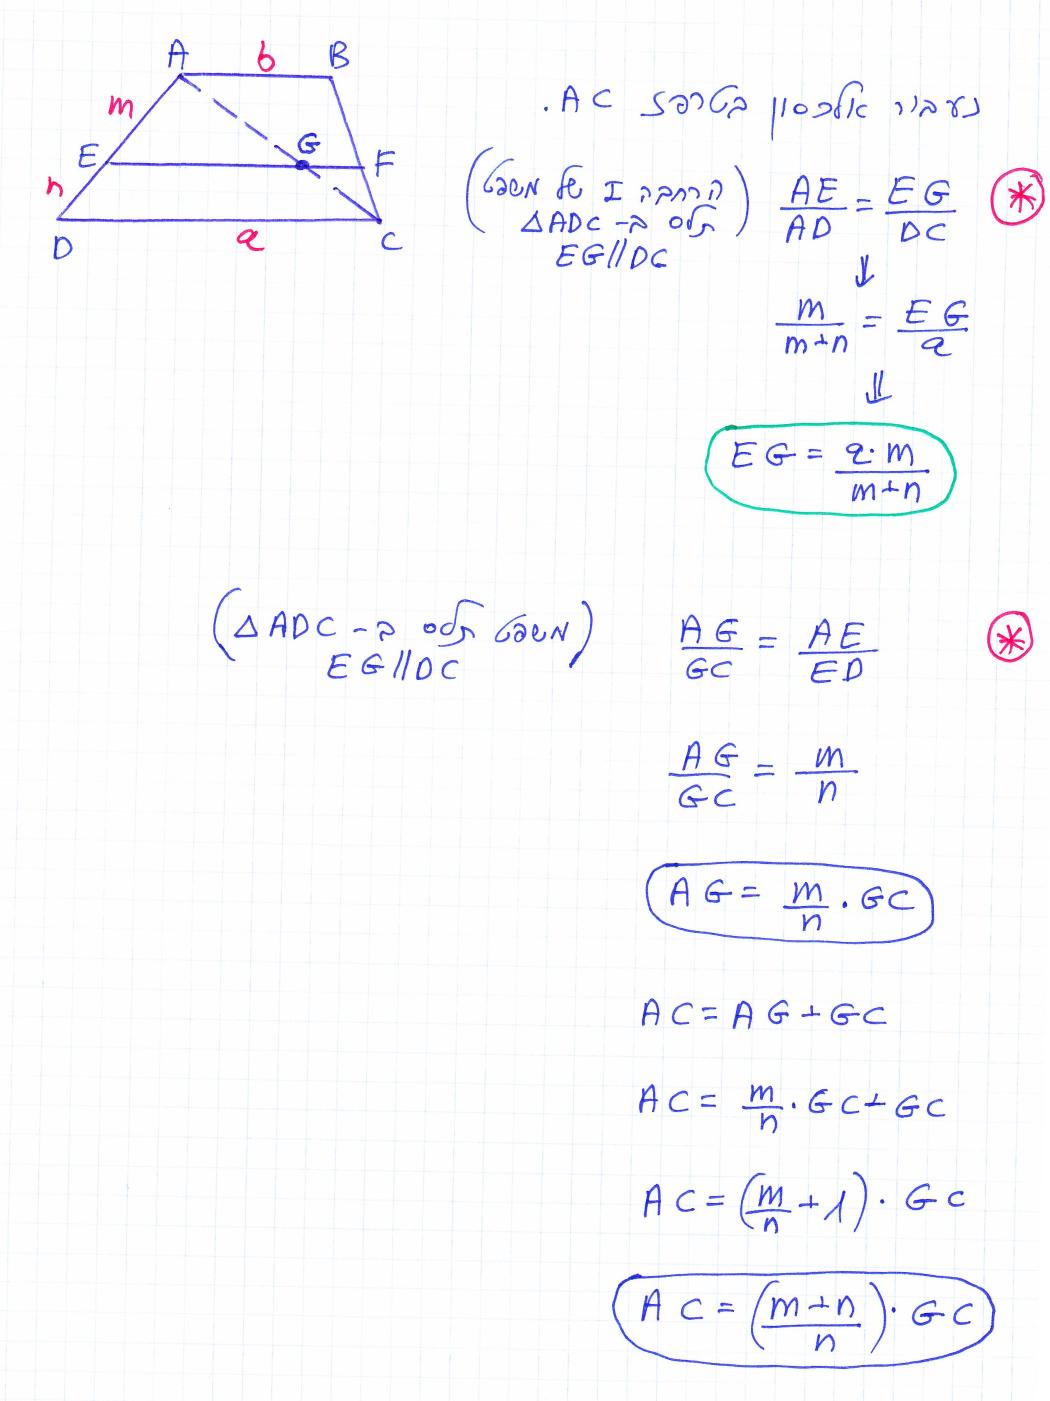 A b B
m
E G F
n
D a C
נעבור אלכסון בטרפז AC.
AE/AD = EG/DC (הרחבה I של משפט
תלס ב- ΔADC
EG//DC)
⇓
m/(m+n) = EG/a
⇓
EG = a·m/(m+n)
AG/GC = AE/ED (משפט תלס ב- ΔADC
EG//DC)
AG/GC = m/n
AG = m/n · GC
AC = AG + GC
AC = m/n · GC + GC
AC = (m/n + 1) · GC
AC = ((m+n)/n) · GC